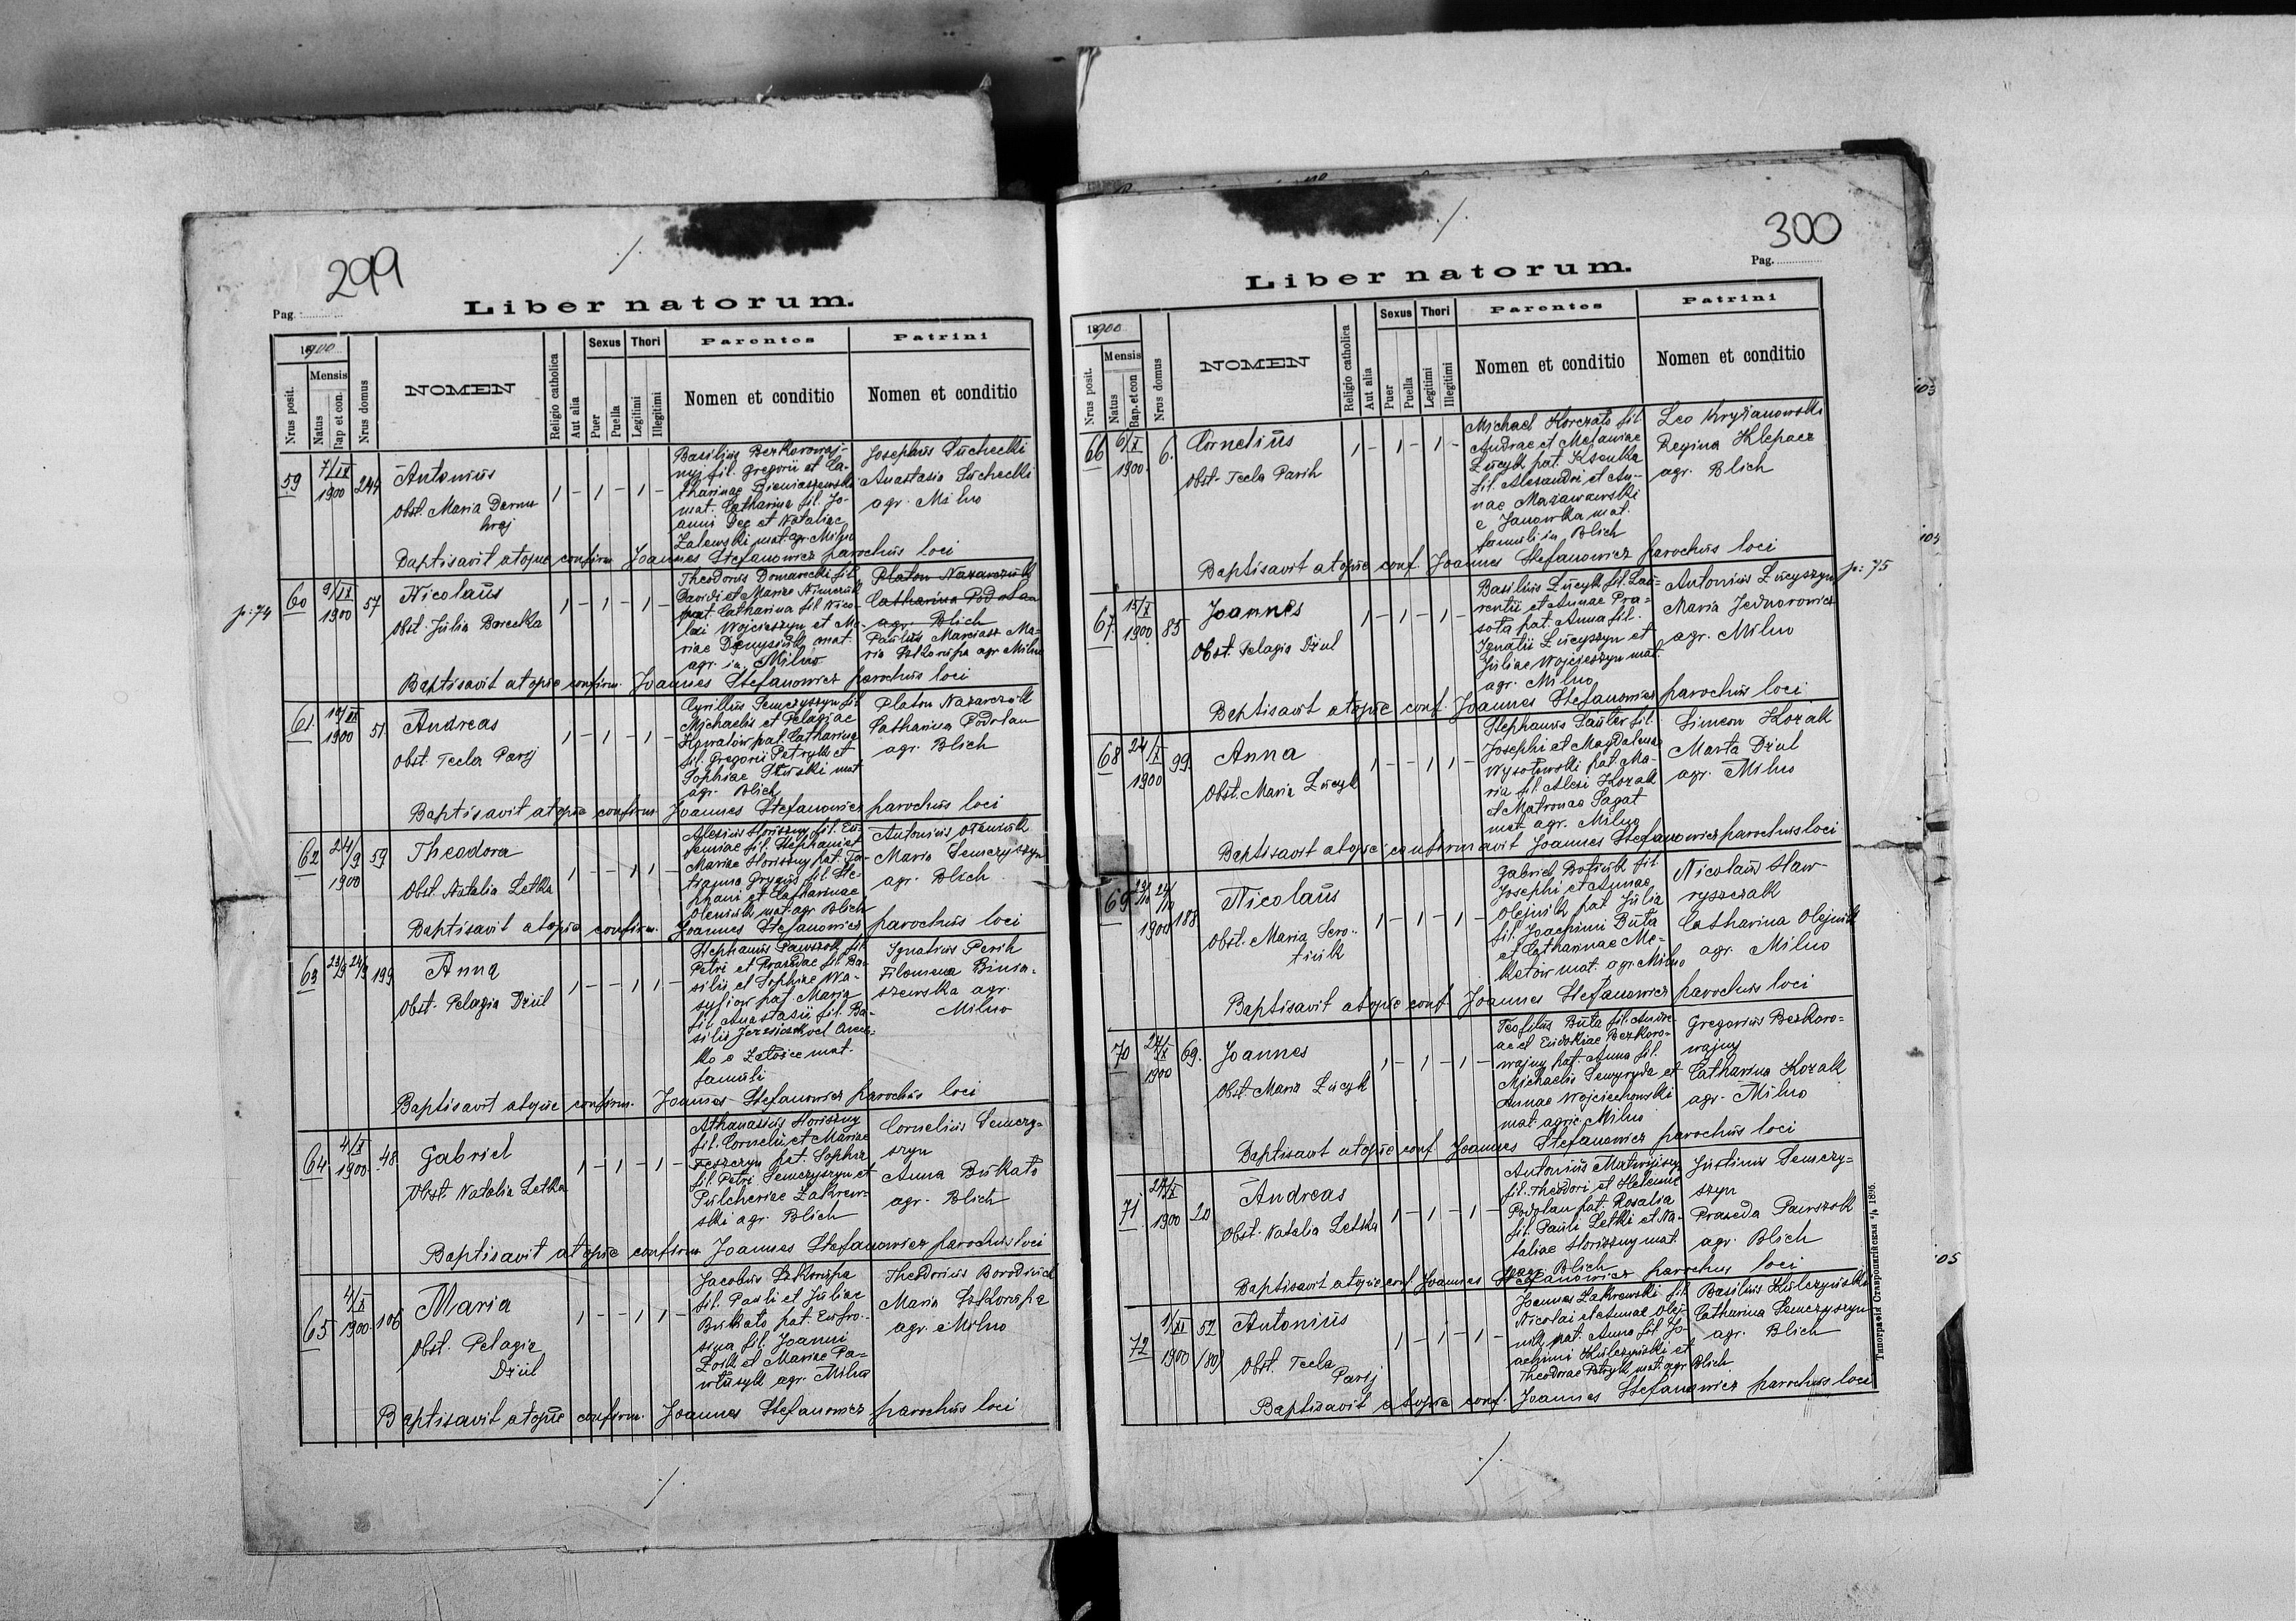 299
Pag.
Liber natorum.
1900
Nrus posit.
Mensis
Natus
Bap et con.
Nrus domus
NOMEN
Religio catholica
Aut alia
Sexus
Puer
Puella
Thori
Legitimi
Illegitimi
Parentes
Nomen et conditio
Patrini
Nomen et conditio
59
7/IX
1900
244
Antonius
Obst. Maria Dernu
kraj
1 - 1 - 1 -
Basilius Bezkorowaj-
nyj fil. Gregorii et Ca-
tharinae Bieniaszewski
mat. Catharina fil. Jo-
anni Dec et Nataliae
Zalewski mat. agr. Milno
Josephus Suchecki
Anastasia Suchecki
agr. Milno
Baptisavit atque confirm. Joannes Stefanowicz parochus loci
p: 74
60
9/IX
1900
57
Nicolaus
Obst. Julia Barecka
1 - 1 - 1 -
Theodorus Domarecki fil.
Davidi et Mariae Nimczuk
pat. Catharina fil. Nico-
lai Wojcieszyn et Ma-
riae Demysiuk mat.
agr. in Milno
Platon Nazarczuk
Catharina Podolan
agr. Blich
Paulus Marciasz Ma-
ria Szkorupa agr. Milno
Baptisavit atque confirm. Joannes Stefanowicz parochus loci
61.
1900
51
Andreas
Obst. Tecla Parij
1 - 1 - 1 -
Cyrillus Semczyszyn fil.
Michaelis et Pelagiae
pat. Catharina
fil. Gregorii Petryk et
Sophiae mat
agr. Blich
Platon Nazarczuk
Catharina Podolan
agr. Blich
Baptisavit atque confirm. Joannes Stefanowicz parochus loci
62
24/9
1900
59
Theodora
Obst. Natalia Letka
1 - - 1 1 -
Alexius Horiszny fil. Eu-
femiae fil. Stephani et
Mariae Horiszny pat. Ta-
fil. Ste-
phani et Catharinae
Olejnik mat. agr. Blich
Antonius
Maria Semczyszyn
agr. Blich
Baptisavit atque confirm. Joannes Stefanowicz parochus loci
63
23/9 24/9
199
Anna
Obst. Pelagia Dziul
1 - - 1 1 -
Stephanus Pawszok fil.
Petri et Praxedae fil. Ba-
silii et Sophiae Wa-
pat. Maria
fil. Anastasii fil. Ba-
silii
ko e Zalosce mat.
famuli
Ignatius Perih
Filomena Binia-
szewska agr.
Milno
Baptisavit atque confirm. Joannes Stefanowicz parochus loci
64
4/X
1900
48
Gabriel
Obst. Natalia Letka
1 - 1 - 1 -
Athanasius Horiszny
fil. Cornelii et Mariae
Feszczyn pat. Sophia
fil. Petri Semczyszyn et
Pulcheriae Zakrew-
ski agr. Blich
Cornelius Semczy-
szyn
Anna Bukato
agr. Blich
Baptisavit atque confirm. Joannes Stefanowicz parochus loci
65
4/X
1900
106
Maria
Obst. Pelagia
Dziul
1 - - 1 1 -
Jacobus Szkorupa
fil. Pauli et Juliae
Bukato pat. Eufro-
sina fil. Joanni
et Mariae Pa-
wlusyk agr. Milno
Theodorus Borodziuk
Maria Szkorupa
agr. Milno
Baptisavit atque confirm. Joannes Stefanowicz parochus loci
300
Pag.
Liber natorum.
1900
Nrus posit.
Mensis
Natus
Bap. et con
Nrus domus
NOMEN
Religio catholica
Aut alia
Sexus
Puer
Puella
Thori
Legitimi
Illegitimi
Parentes
Nomen et conditio
Patrini
Nomen et conditio
66
6/X
1900
6.
Cornelius
Obst. Tecla Parih
1 - 1 - 1 -
Michael Horczato fil.
Andrae et Melaniae
Lucyk pat. Ksenka
fil. Alexandri et An-
nae Mazawiewski
e Janowka mat.
famuli in Blich
Leo Kryzanowski
Regina Klepacz
agr. Blich
Baptisavit atque conf. Joannes Stefanowicz parochus loci
p: 75
67.
15/X
1900
85
Joannes
Obst. Pelagia Dziul
1 - 1 - 1 -
Basilius Lucyk fil. Lau-
rentii et Annae Pra-
sota pat. Anna fil.
Ignatii Lucyszyn et
Juliae Wojcieszyn mat.
agr. Milno
Antonius Lucyszyn
Maria Jednorowicz
agr. Milno
Baptisavit atque conf. Joannes Stefanowicz parochus loci
68
24/X
1900
99.
Anna
Obst. Maria Lucyk
1 - - 1 1 -
Stephanus Sauler fil.
Josephi et Magdalenae
Wysotowski pat. Ma-
ria fil. Alexi Kozak
et Matronae Sagat
mat. agr. Milno
Simeon Kozak
Marta Dziul
agr. Milno
Baptisavit atque confirmavit Joannes Stefanowicz parochus loci
69
23/10 24/10
1900
188
Nicolaus
Obst. Maria Sero-
tiuk
1 - 1 - 1 -
Gabriel Botiuk fil.
Josephi et Annae
Olejnik pat. Julia
fil. Joachimi Buta
et Catharinae Me-
ketow mat. agr. Milno
Nicolaus Haw-
ryszczak
Catharina Olejnik
agr. Milno
Baptisavit atque conf. Joannes Stefanowicz parochus loci
70
24/X
1900
69.
Joannes
Obst. Maria Lucyk
1 - 1 - 1 -
Teofilus Buta fil. Andre-
ae et Eudokiae Bezkoro-
wajny pat. Anna fil.
Michaelis Semyryda et
Annae Wojciechowski
mat. agric. Milno
Gregorius Bezkoro-
wajny
Catharina Kozak
agr. Milno
Baptisavit atque conf. Joannes Stefanowicz parochus loci
71
1900
20
Andreas
Obst. Natalia Letka
1 - 1 - 1 -
Antonius Matwijiszyn
fil. Theodori et Helenae
Podolan pat. Rosalia
fil. Pauli Letki et Na-
taliae Horiszny mat.
agr. Blich
Justinus Semczy-
szyn
Praxeda Pawszok
agr. Blich
Baptisavit atque conf. Joannes Stefanowicz parochus loci
72
1/XI
1900
52
(80)
Antonius
Obst. Tecla
Parij
1 - 1 - 1 -
Joannes Zakrewski fil.
Nicolai et Annae Olej-
nik pat. Anna fil. Jo-
achimi Kulczynski et
Theodorae Petryk mat. agr. Blich
Basilius Kulczynski
Catharina Semczyszyn
agr. Blich
Baptisavit atque conf. Joannes Stefanowicz parochus loci
103
104
105